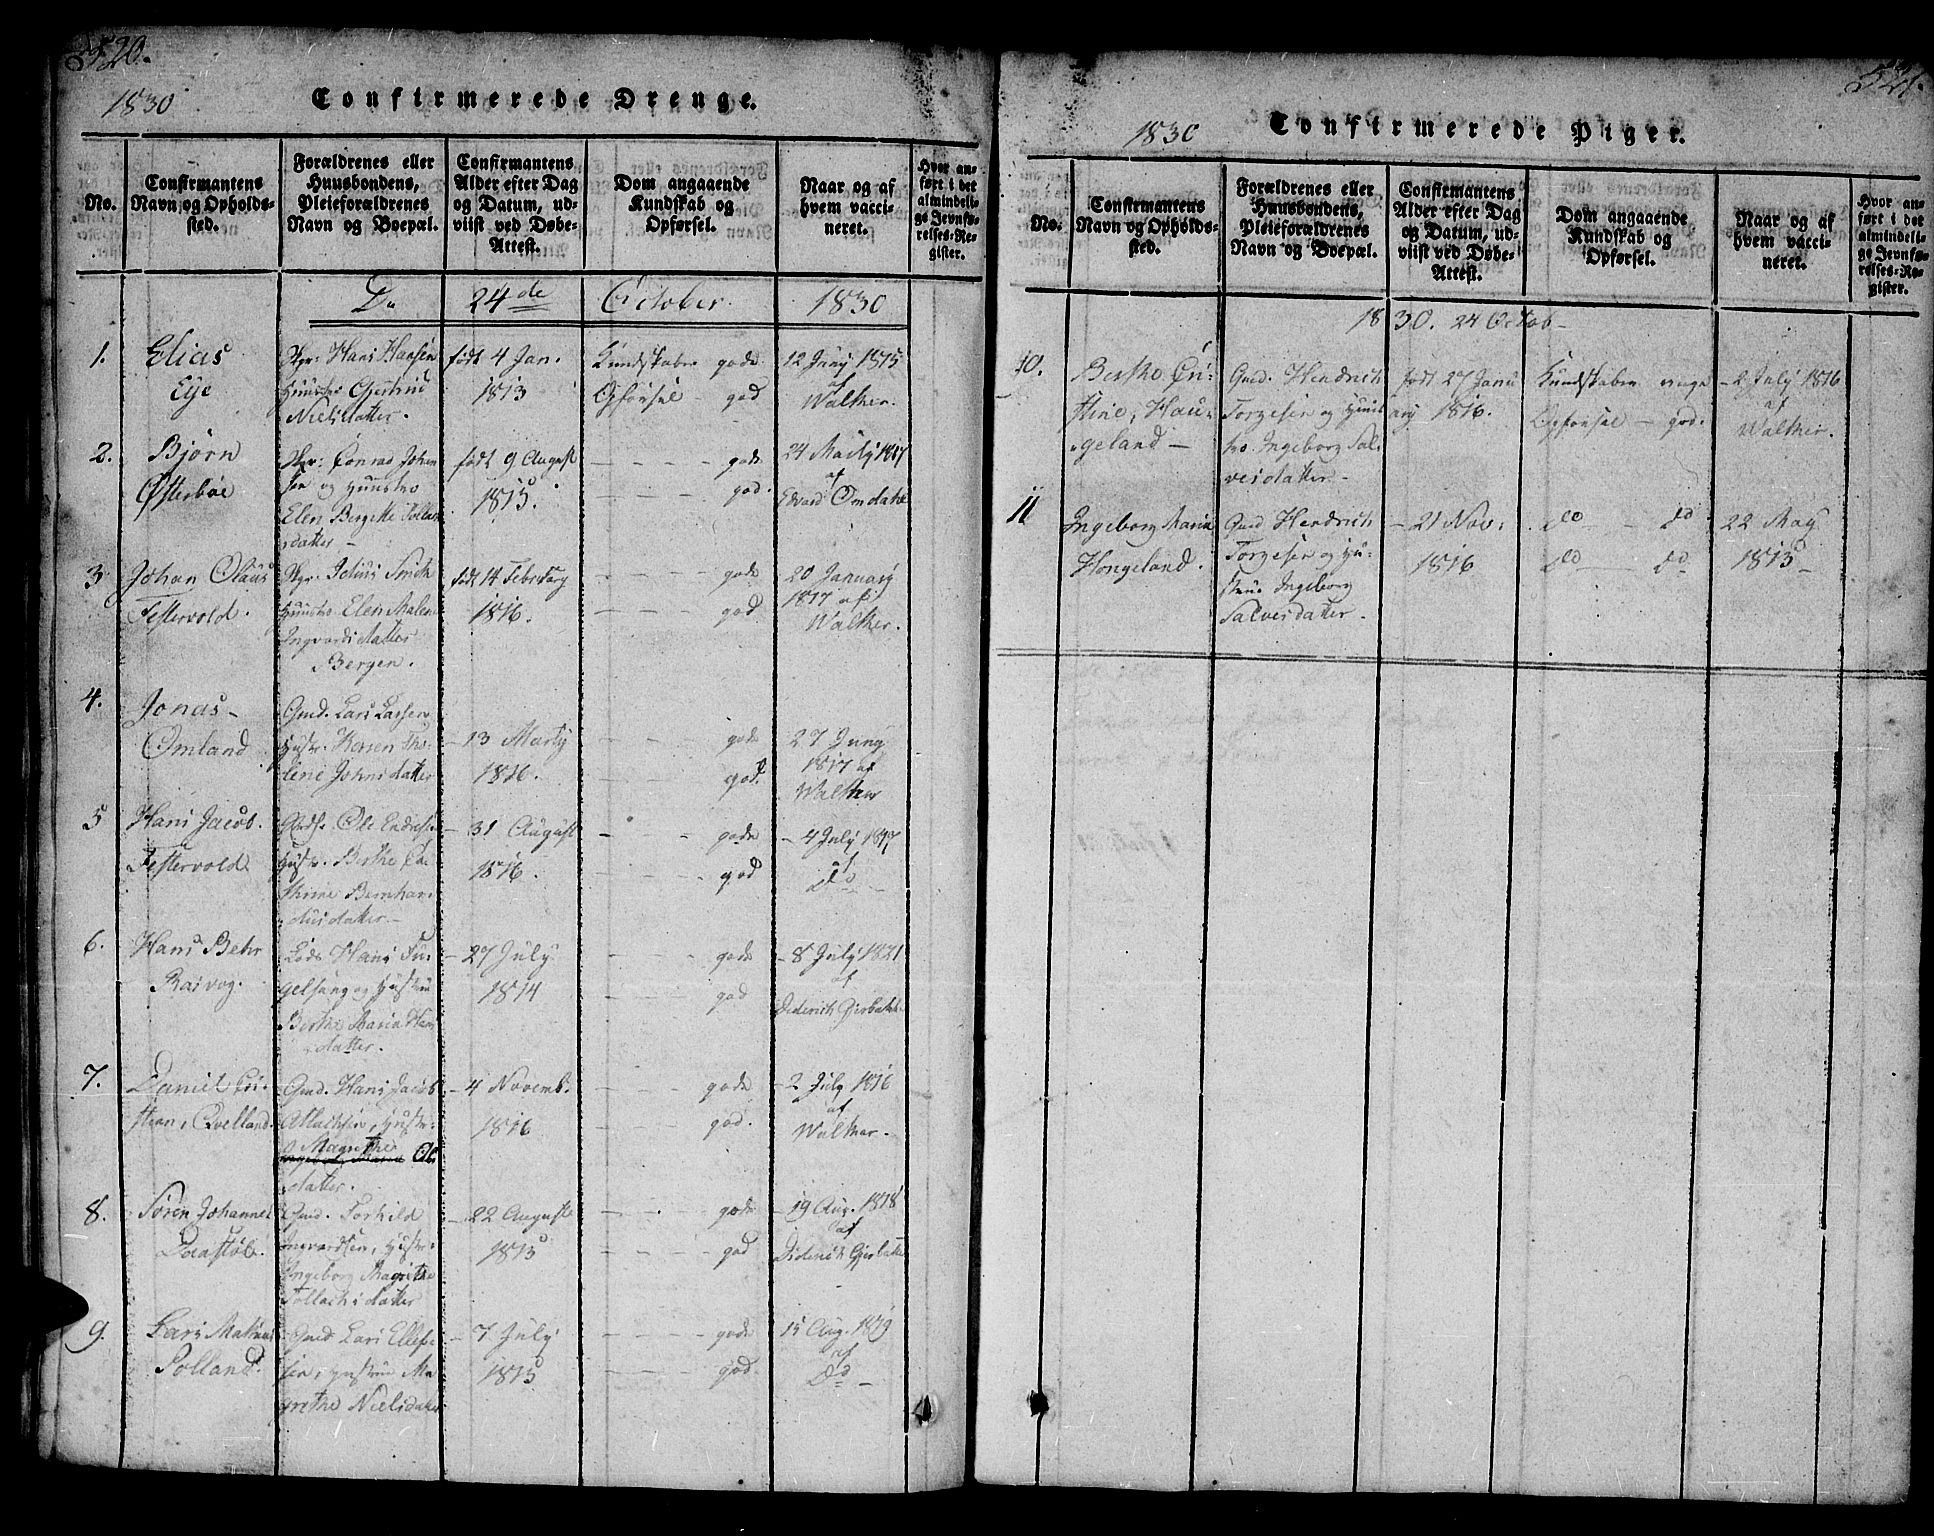 520.
1830
Confirmerede Drenge.
No.
Confirmantens
Navn og Opholds-
sted.
Forældrenes eller
Huusbondens,
Pleieforældrenes
Navn og Boepæl.
Confirmantens
Alder efter Dag
og Datum, ud-
viist ved Døbe-
Attest.
Dom angaaende
Kundskab og
Opførsel.
Naar og af
hvem vacci-
neret.
Hvor an-
ført i det
almindeli-
ge Jevnfø-
relses-Re-
gister.
24de October 1830
1.
Elias
Eye
Hans Hansen
Gjertrud
Nielsdatter.
født 4 Jan.
1813
Kundskaber gode
Opførsel god
12 Juny 1815
af
Walker.
2.
Bjørn
Østerbøe
Conrad Johan
sen og Huustro
Elen Bergitte
datter
født 9 August
1815.
gode
god.
24 1817
af
Edvard Omdahl
3
Johan Olaus
Festervold.
Smith
Huustro Elen Malene
Ingvardsdatter
Bergen.
født 14 February
1816.
gode
god
20 January
1817 af
Walker.
4.
Jonas
Omland
Gmd. Lars Larsen
Hustr. Karen Tho-
lene Johnsdatter
13 Marty
1816.
gode
god.
27 Juny
1817 af
Walker
5
Hans Jacob.
Festervold
Ole Endresen
Hustr. Berthe Ca-
thrine Bernhar-
dusdatter
31 August
1816.
gode
god
4 July 1817
af
Do
6.
Hans Behr
Rasvog.
Lods Hans Fu-
gelsang og Hustrue
Berthe Maria Hans
datter.
27 July
1814
gode
god
8 July 1821
af
Diderich Gjerbakke
7.
Daniel Cri-
stian, Qvelland.
Gmd. Hans Jacob
Atlachsen, Hustr:
Magrethe Ols
datter.
4 Novemb:
1816
gode
god.
2 July 1816
af
Walker.
8.
Søren Johannes
Daastøl.
Gmd. Torkild
Ingvardsen, Hustr:
Ingeborg Magrethe
Tollachsdatter
22 Auguste
1815
gode
god
19 Aug. 1818
af
Diderich Gjerbakke
9.
Lars Mathias
Rolland.
Gmd Lars Ellef-
sen, Hustrue Ma
grethe Nielsdatter
7 July
1815
gode
god.
15 Aug. 1819
af
Do
521.
1830
Confirmerede Piger.
No.
Confirmantens
Navn og Opholds-
sted.
Forældrenes eller
Huusbondens,
Pleieforældrenes
Navn og Boepæl.
Confirmantens
Alder efter Dag
og Datum, ud-
viist ved Døbe-
Attest.
Dom angaaende
Kundskab og
Opførsel.
Naar og af
hvem vacci-
neret.
Hvor an-
ført i det
almindeli-
ge Jevnfø-
relses-Re-
gister.
1830. 24 Octob
10.
Berthe Cri-
stine, Hau-
geland
Gmd. Hendrich
Torgesen og Huus
tro. Ingeborg Sal-
vesdatter
født 27 Janu
ary 1816.
Kundskaber
Opførsel god.
2 July 1816
af
Walker.
11
Ingeborg Maria
Hongeland.
Gmd Hendrich
Torgesen og Hu-
strue Ingeborg
Salvesdatter.
21 Nov:
1816
do do
do do
22 May
1815